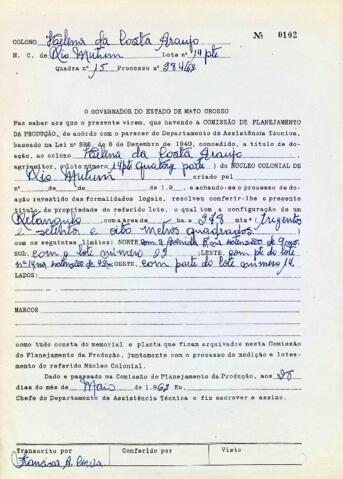 COLONO Helena da Costa Araujo Nº 0102
N. C. de Rio Mutum Lote nº 14 pte
Quadra nº 15 Processo nº 284/62
O GOVERNADOR DO ESTADO DE MATO GROSSO
Faz saber aos que o presente virem, que havendo a COMISSÃO DE PLANEJAMENTO
DA PRODUÇÃO, de acôrdo com o parecer do Departamento de Assistência Técnica,
baseada na Lei nº 336, de 6 de Dezembro de 1949, concedido, a título de doa-
ção, ao colono Helena da Costa Araujo
agricultor, o lote número 14 pte ( parte ) do NÚCLEO COLONIAL DE
Rio Mutum criado pel
nº de de de 1.9 , e achando-se o processo de doa-
ção revestido das formalidades legais, resolveu conferir-lhe o presente
título, de propriedade do referido lote, o qual tem a configuração de um
Retangulo , com a área de ha e 378 mts² ( Trezentos
e setenta e oito metros quadrados )
com os seguintes limites: NORTE, com a Avenida
SUL, com o lote número 22 ; LESTE, com pte do lote
nº 14 na extensão de 42m OESTE, com parte do lote número 14.
LADOS:
MARCOS
como tudo consta do memorial e planta que ficam arquivados nesta Comissão
de Planejamento da Produção, juntamente com o processo de medição e lotea-
mento do referido Núcleo Colonial.
Dado e passado na Comissão de Planejamento da Produção, aos 28
dias do mês de Maio de 1.962 Eu,
Chefe do Departamento de Assistência Técnica o fiz escrever e assino.
Transcrito por Conferido por Visto